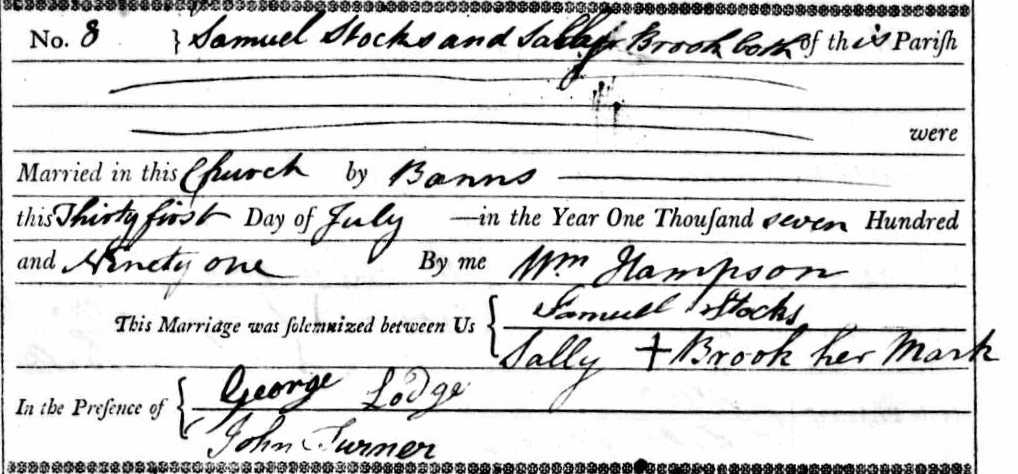 No. 8 } Samuel Stocks and Sally Brook both of this Pariſh
were
Married in this Church by Banns
this Thirty first Day of July —in the Year One Thouſand seven Hundred
and Ninety one By me Wm Hampson
This Marriage was ſolemnized between Us { Samuel Stocks
Sally + Brook her Mark
In the Preſence of { George Lodge
John Turner